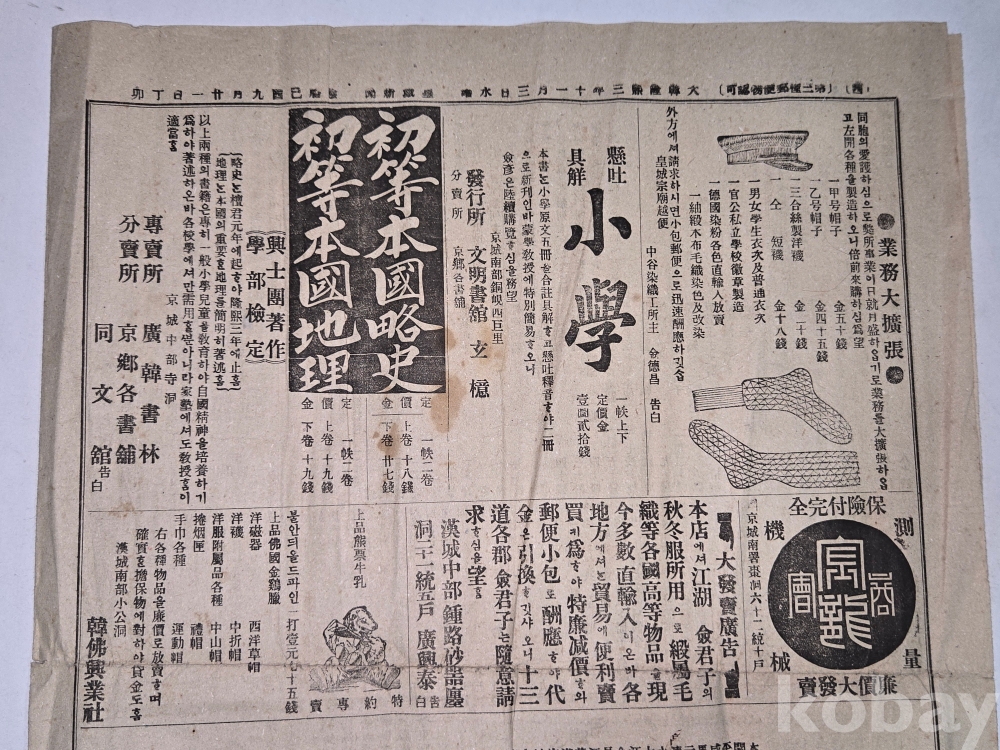 (四) (第三種郵便物認可) 大韓隆熙三年十一月三日水曜 己巳四九月廿一日丁卯
業務大擴張
同胞의愛護하심으로弊所事業이日就月盛하옵기로業務를大擴張하옵
고左開各種을製造하오니倍前來購하심을望
一甲号帽子 金五十錢
一乙号帽子 金四十五錢
一三合絲製洋襪 金二十錢
一仝 短襪 金十八錢
一男女學生衣次及普通衣次
一官公私立學校徽章製造
一德國染粉各色直輸入放賣
一紬緞本布毛織染色及改染
外方에셔請求하시면小包郵便으로迅速酬應하깃슴
皇城宗廟越便
中谷染織工所主 金德昌 告白
懸吐
具解
小學
一帙上下
定價金
壹圜貳拾錢
本書는小學原文五冊을合註具解하고懸吐釋音하야二冊
으로新刊인바蒙學敎授에特別簡易하오니
僉彦은陸續購覽하심을務望
京城南部銅峴四巨里
發行所 文明書舘 玄檍
分賣所 京鄕各書舖
初等本國略史
初等本國地理
定價金
一帙二卷
上卷 十八錢
下卷 廿七錢
定價金
一帙二卷
上卷 十九錢
下卷 十九錢
興士團著作
學部檢定
略史는檀君元年에起하야隆熙三年에止흠
地理는本國의重要흔地理를簡明히著述흠
以上兩種의書籍은專히一般小學兒童을敎育하야自國精神을培養하기
爲하야著述하온바各校學에셔만需用홀뿐아니라家塾에셔도敎授흠이
適當흠
京城中部寺洞
專賣所 廣韓書林
分賣所 京鄕各書舖
同文舘 告白
保險付完全
測量
機械
商會
廉價大發賣
京城南署棗洞六十二統十戶
大發賣廣告
本店에셔江湖 僉君子의
秋冬服所用으로緞屬毛
織等各國高等物品을現
今多數直輸入이온바各
地方에셔는貿易에便利賣
買키爲하야特廉减價하와
郵便小包로酬應하야代
金은引換하깃사오니十三
道各郡僉君子는隨意請
求하심을望흠
漢城中部鍾路砂器廛
洞二十一統五戶 廣興泰 告白
上品熊票牛乳
特約專賣
불안되올드파인一打壹元七十五錢
上品佛國金鷄臘
洋磁器 西洋草帽
洋襪 中折帽
洋服附屬品各種 中山帽
捲烟匣 禮帽
手巾各種 運動帽
右各種物品을廉價로放賣하며
確實흔擔保物에對하야貸金도흠
漢城南部小公洞
韓佛興業社
kobay